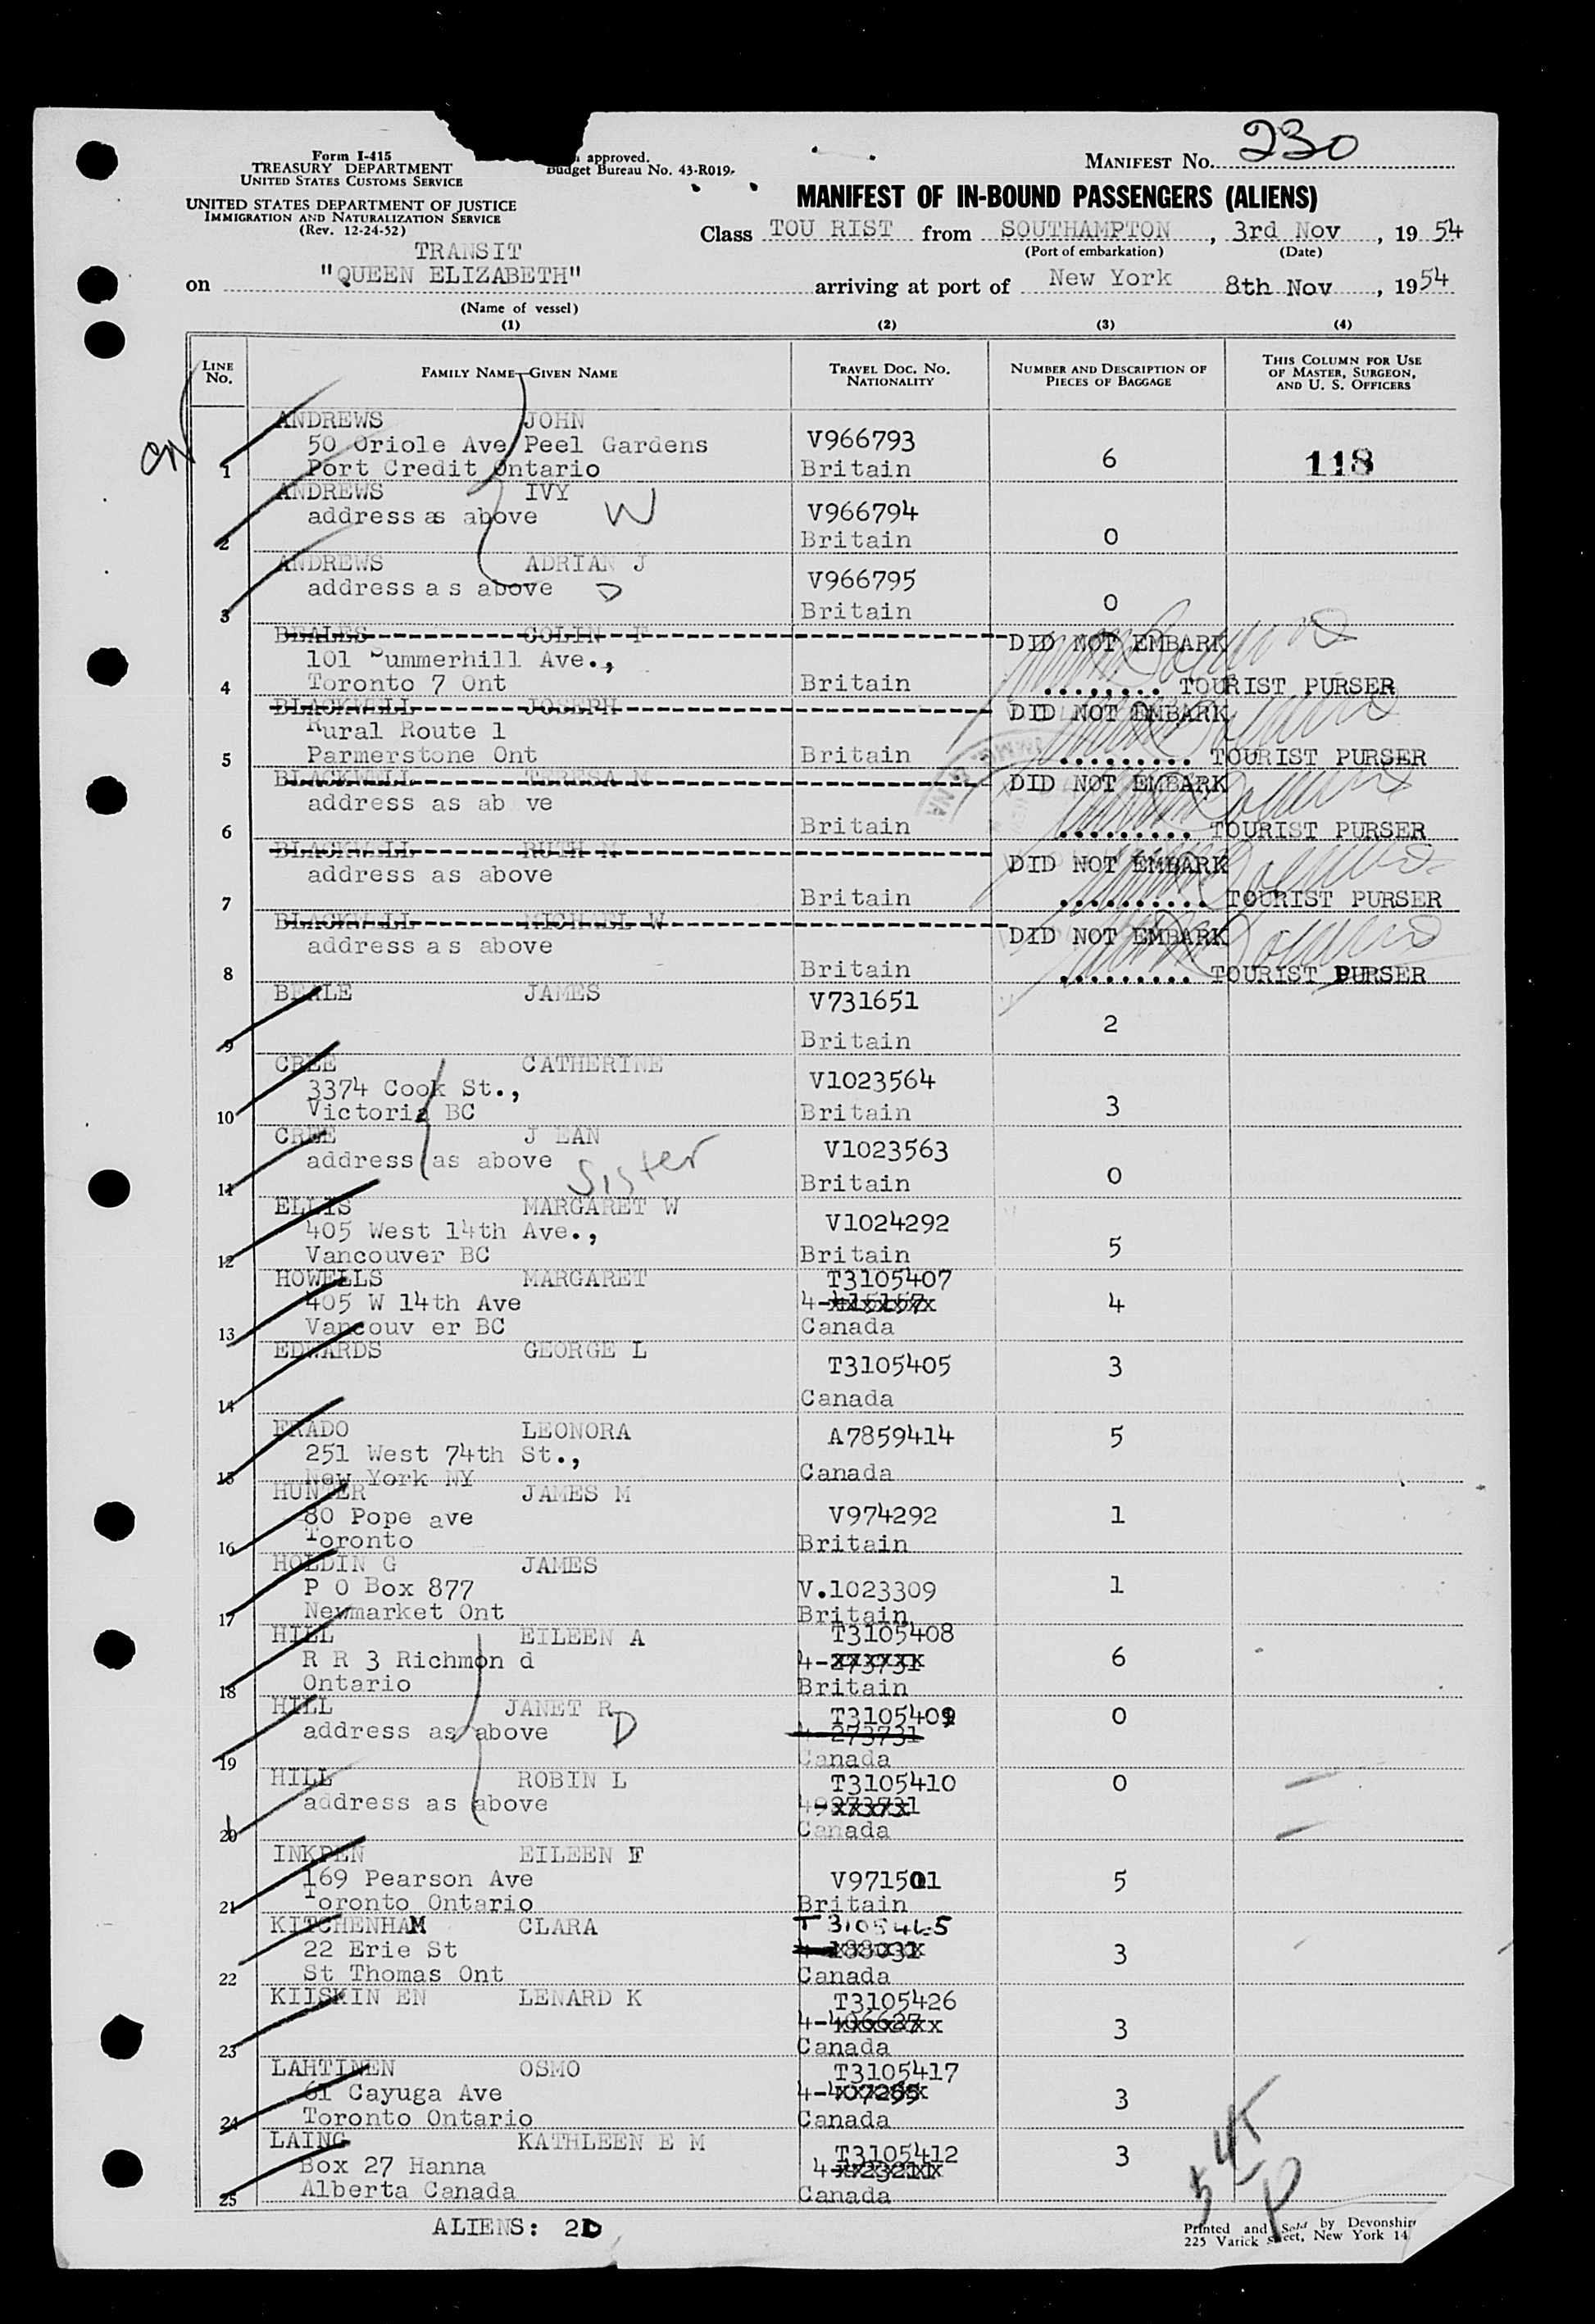 230
Form I-415
TREASURY DEPARTMENT
UNITED STATES CUSTOMS SERVICE
approved.
Budget Bureau No. 43-R019.
MANIFEST NO.
UNITED STATES DEPARTMENT OF JUSTICE
IMMIGRATION AND NATURALIZATION SERVICE
(Rev. 12-24-52)
MANIFEST OF IN-BOUND PASSENGERS (ALIENS)
Class TOU RIST from SOUTHAMPTON, 3rd Nov, 19 54
(Port of embarkation) (Date)
TRANSIT
on "QUEEN ELIZABETH" arriving at port of New York 8th Nov, 19 54
(Name of vessel)
(1) (2) (3) (4)
LINE NO.
FAMILY NAME—GIVEN NAME
TRAVEL DOC. NO. NATIONALITY
NUMBER AND DESCRIPTION OF PIECES OF BAGGAGE
THIS COLUMN FOR USE OF MASTER, SURGEON, AND U. S. OFFICERS
ANDREWS JOHN
50 Oriole Ave Peel Gardens V966793
1 Port Credit Ontario Britain 6 118
ANDREWS IVY
address as above W V966794
2 Britain 0
ANDREWS ADRIAN J
address a s above D V966795
3 Britain 0
BEALES COLIN F DID NOT EMBARK
101 Summerhill Ave.,
4 Toronto 7 Ont Britain ........ TOURIST PURSER
BLACKWELL JOSEPH DID NOT EMBARK
Rural Route 1
5 Parmerstone Ont Britain ......... TOURIST PURSER
BLACKWELL TERESA M DID NOT EMBARK
address as ab ve
6 Britain ......... TOURIST PURSER
BLACKWELL RUTH M DID NOT EMBARK
address as above
7 Britain .......... TOURIST PURSER
BLACKWELL MICHAEL W DID NOT EMBARK
address a s above
8 Britain ......... TOURIST PURSER
BEALE JAMES V731651
9 Britain 2
CREE CATHERINE
3374 Cook St., V1023564
10 Victoria BC Britain 3
CREE J EAN V1023563
address as above Sister
11 Britain 0
ELLIS MARGARET W
405 West 14th Ave., V1024292
12 Vancouver BC Britain 5
HOWELLS MARGARET T3105407
405 W 14th Ave 4
13 Vancouv er BC Canada
EDWARDS GEORGE L T3105405 3
14 Canada
ERADO LEONORA A7859414 5
251 West 74th St.,
15 New York NY Canada
HUNTER JAMES M
80 Pope ave V974292 1
16 Toronto Britain
HOLDIN G JAMES
P O Box 877 V.1023309 1
17 Newmarket Ont Britain
HILL EILEEN A T3105408
R R 3 Richmon d 4-273731 6
18 Ontario Britain
HILL JANET R D T3105409 0
address as above 4-273731
19 Canada
HILL ROBIN L T3105410 0
address as above
20 Canada
INKPEN EILEEN F
169 Pearson Ave V971501 5
21 Toronto Ontario Britain
KITCHENHAM CLARA
22 Erie St 3
22 St Thomas Ont Canada
KIISKIN EN LENARD K T3105426
3
23 Canada
LAHTINEN OSMO T3105417
61 Cayuga Ave 3
24 Toronto Ontario Canada
LAING KATHLEEN E M T3105412 3
Box 27 Hanna
25 Alberta Canada Canada
ALIENS:
Printed and Sold by Devonshire
225 Varick Street, New York 14